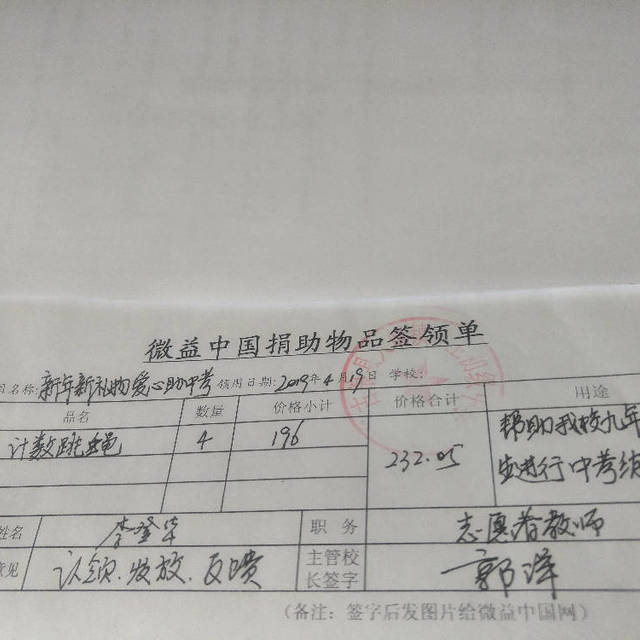 微益中国捐助物品签领单
名称:新年新礼物爱心助中考 领用日期:2019年4月19日 学校:
品名 数量 价格小计 价格合计 用途
计数跳绳 4 196 232.05 帮助我校九年
生进行中考
姓名 李登华 职务 志愿者教师
意见 认领、发放、反馈 主管校长签字 郭洋
(备注:签字后发图片给微益中国网)